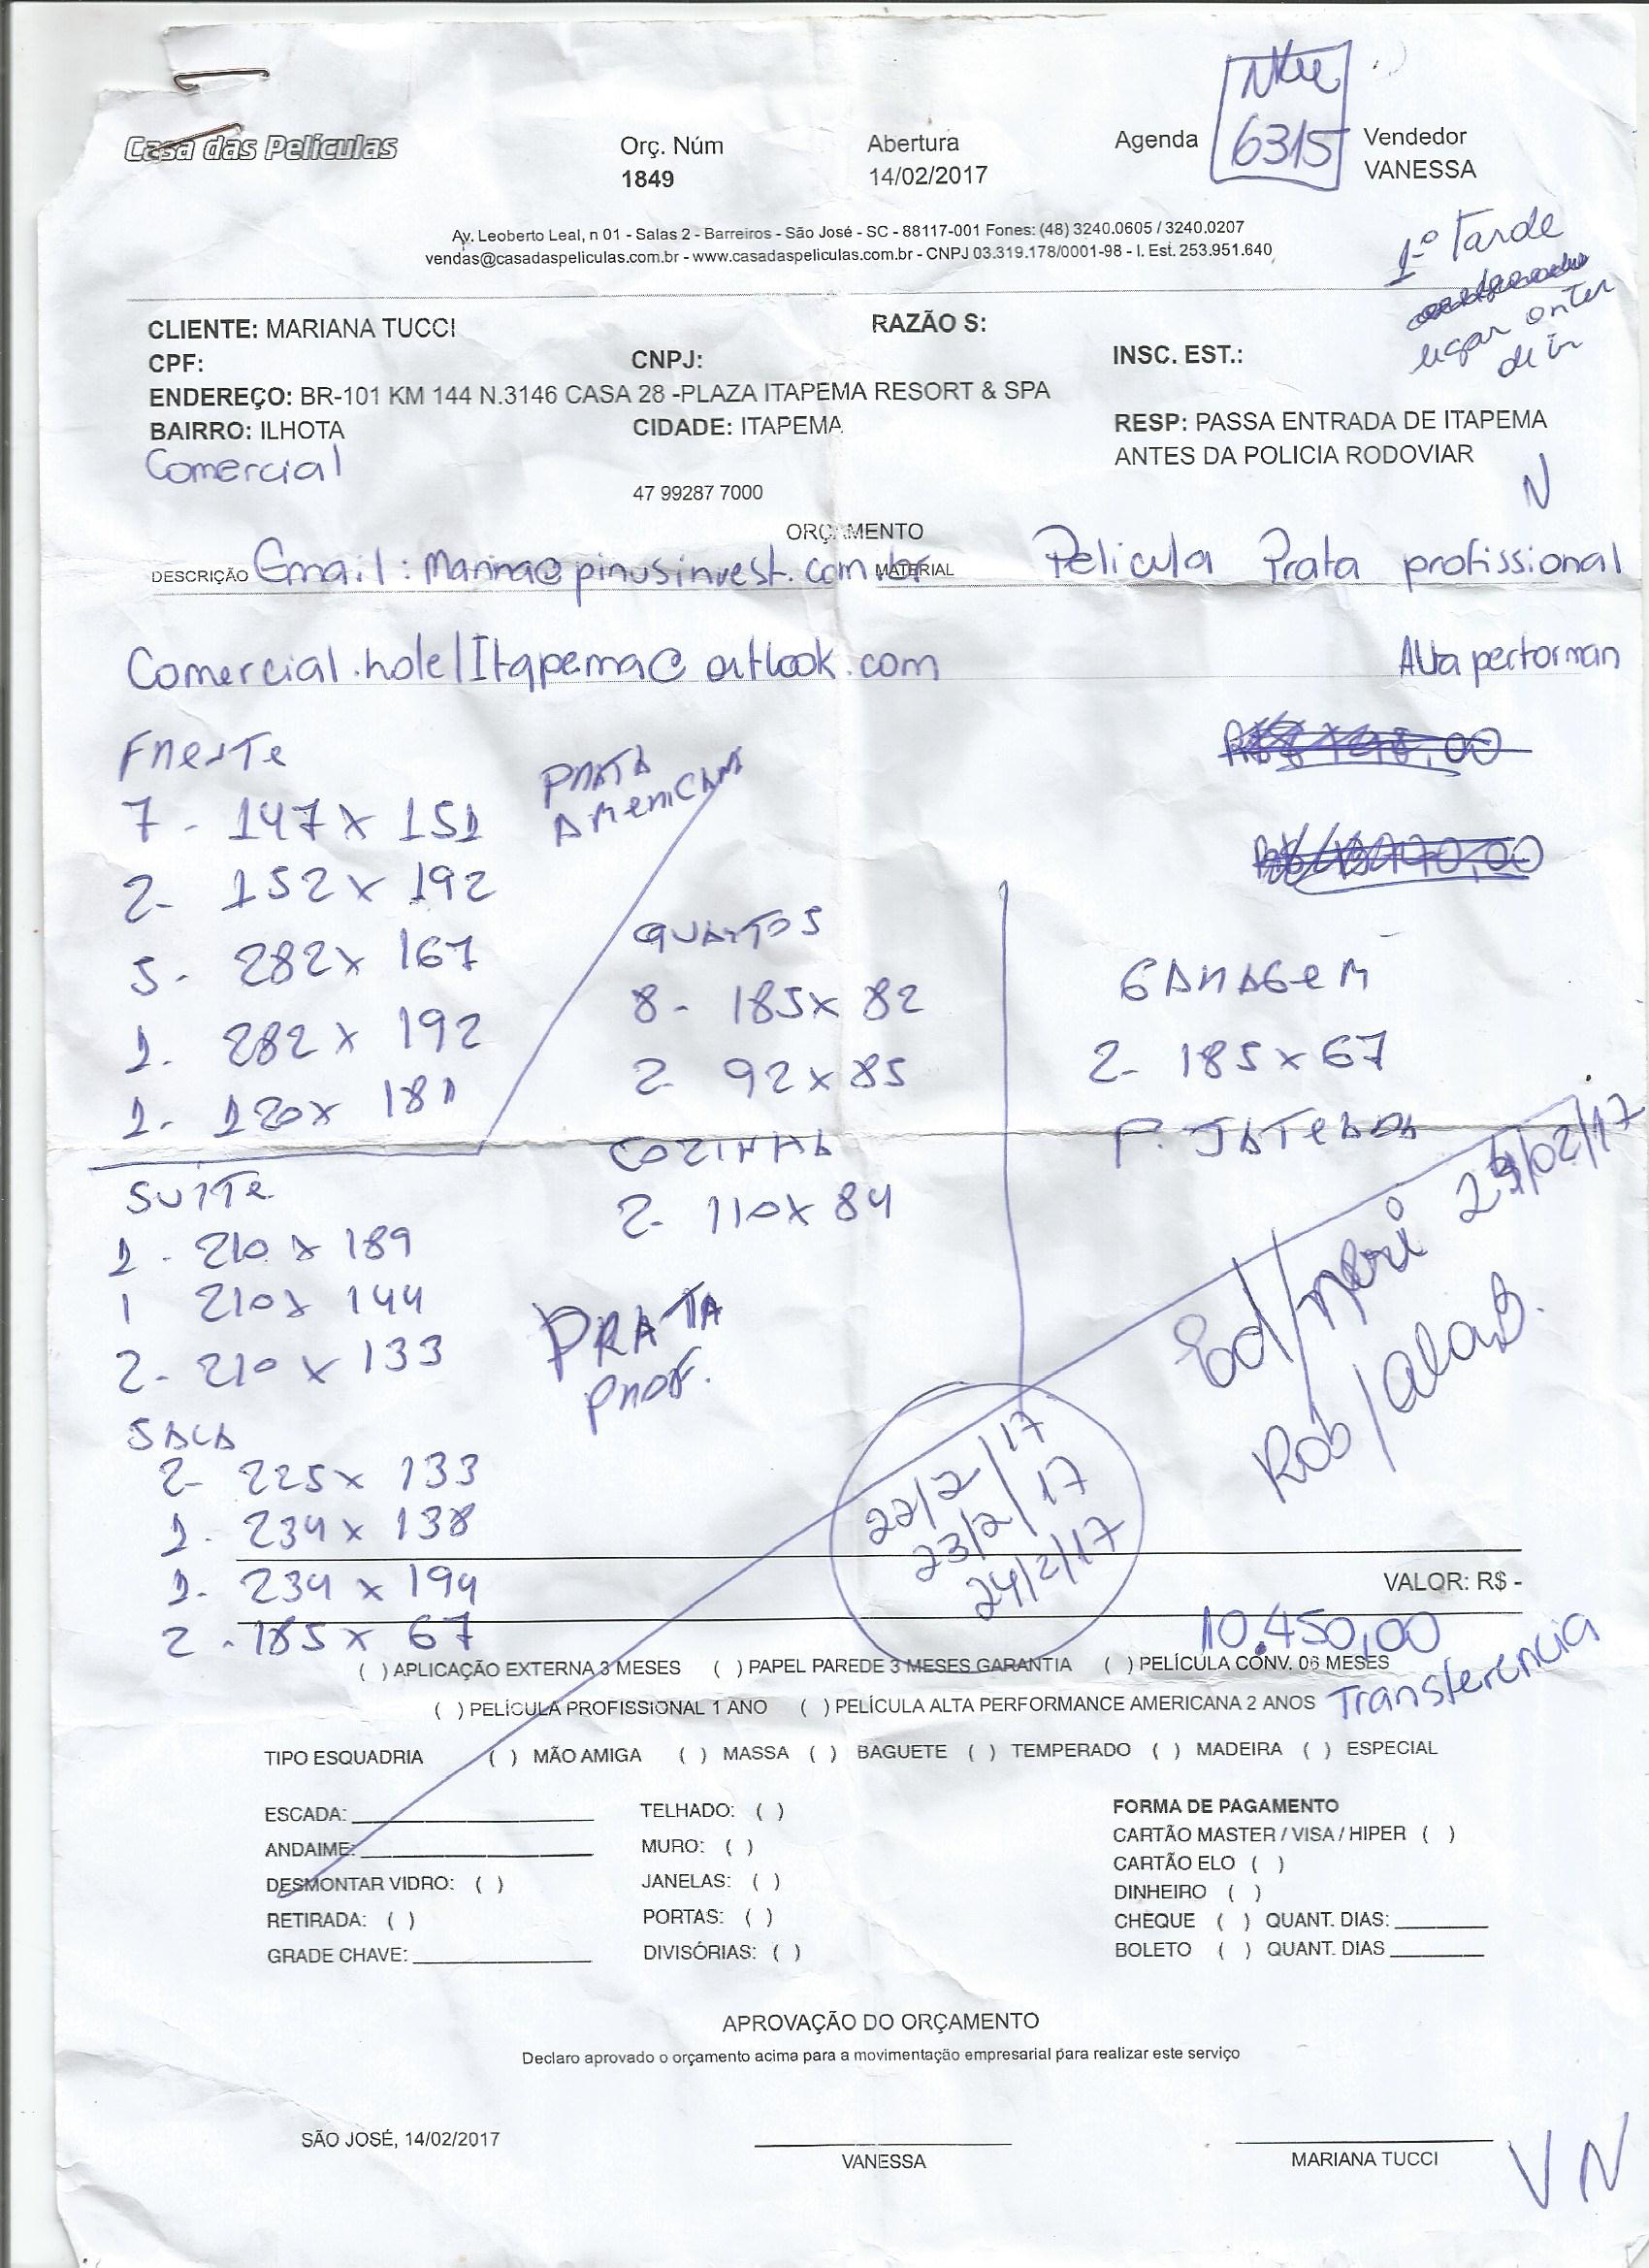 Casa das Películas
Orç. Núm
1849
Abertura
14/02/2017
Agenda
6315
Vendedor
VANESSA
Av. Leoberto Leal, n 01 - Salas 2 - Barreiros - São José - SC - 88117-001 Fones: (48) 3240.0605 / 3240.0207
vendas@casadaspeliculas.com.br - www.casadaspeliculas.com.br - CNPJ 03.319.178/0001-98 - I. Est. 253.951.640
1º Tarde
ligar antes
de ir
CLIENTE: MARIANA TUCCI
RAZÃO S:
CPF:
CNPJ:
INSC. EST.:
ENDEREÇO: BR-101 KM 144 N.3146 CASA 28 -PLAZA ITAPEMA RESORT & SPA
BAIRRO: ILHOTA
CIDADE: ITAPEMA
RESP: PASSA ENTRADA DE ITAPEMA
ANTES DA POLICIA RODOVIAR
Comercial
47 99287 7000
N
ORÇAMENTO
DESCRIÇÃO Email: @pinusinvest.com.br
MATERIAL Pelicula Prata profissional
Comercial.hotelItapema@outlook.com
Alta performan
FRENTE
7 - 147 x 151
2 - 152 x 192
5 - 282 x 167
1 - 282 x 192
1 - 120 x 181
PRATA
AMERICANA
SUITE
1 - 210 x 189
1 210 x 144
2 - 210 x 133
SALA
2 - 225 x 133
1 - 234 x 138
1 - 234 x 194
2 - 185 x 67
QUARTOS
8 - 185 x 82
2 - 92 x 85
COZINHA
2 - 110 x 84
PRATA
PROF.
GARAGEM
2 - 185 x 67
P. JATEADA
Ed/Neri 24/02/17
Rob/
22/2/17
23/2/17
24/2/17
VALOR: R$ -
10.450,00
Transferencia
( ) APLICAÇÃO EXTERNA 3 MESES ( ) PAPEL PAREDE 3 MESES GARANTIA ( ) PELÍCULA CONV. 06 MESES
( ) PELÍCULA PROFISSIONAL 1 ANO ( ) PELÍCULA ALTA PERFORMANCE AMERICANA 2 ANOS
TIPO ESQUADRIA ( ) MÃO AMIGA ( ) MASSA ( ) BAGUETE ( ) TEMPERADO ( ) MADEIRA ( ) ESPECIAL
ESCADA:
ANDAIME:
DESMONTAR VIDRO: ( )
RETIRADA: ( )
GRADE CHAVE:
TELHADO: ( )
MURO: ( )
JANELAS: ( )
PORTAS: ( )
DIVISÓRIAS: ( )
FORMA DE PAGAMENTO
CARTÃO MASTER / VISA / HIPER ( )
CARTÃO ELO ( )
DINHEIRO ( )
CHEQUE ( ) QUANT. DIAS:
BOLETO ( ) QUANT. DIAS
APROVAÇÃO DO ORÇAMENTO
Declaro aprovado o orçamento acima para a movimentação empresarial para realizar este serviço
SÃO JOSÉ, 14/02/2017
VANESSA
MARIANA TUCCI
VN